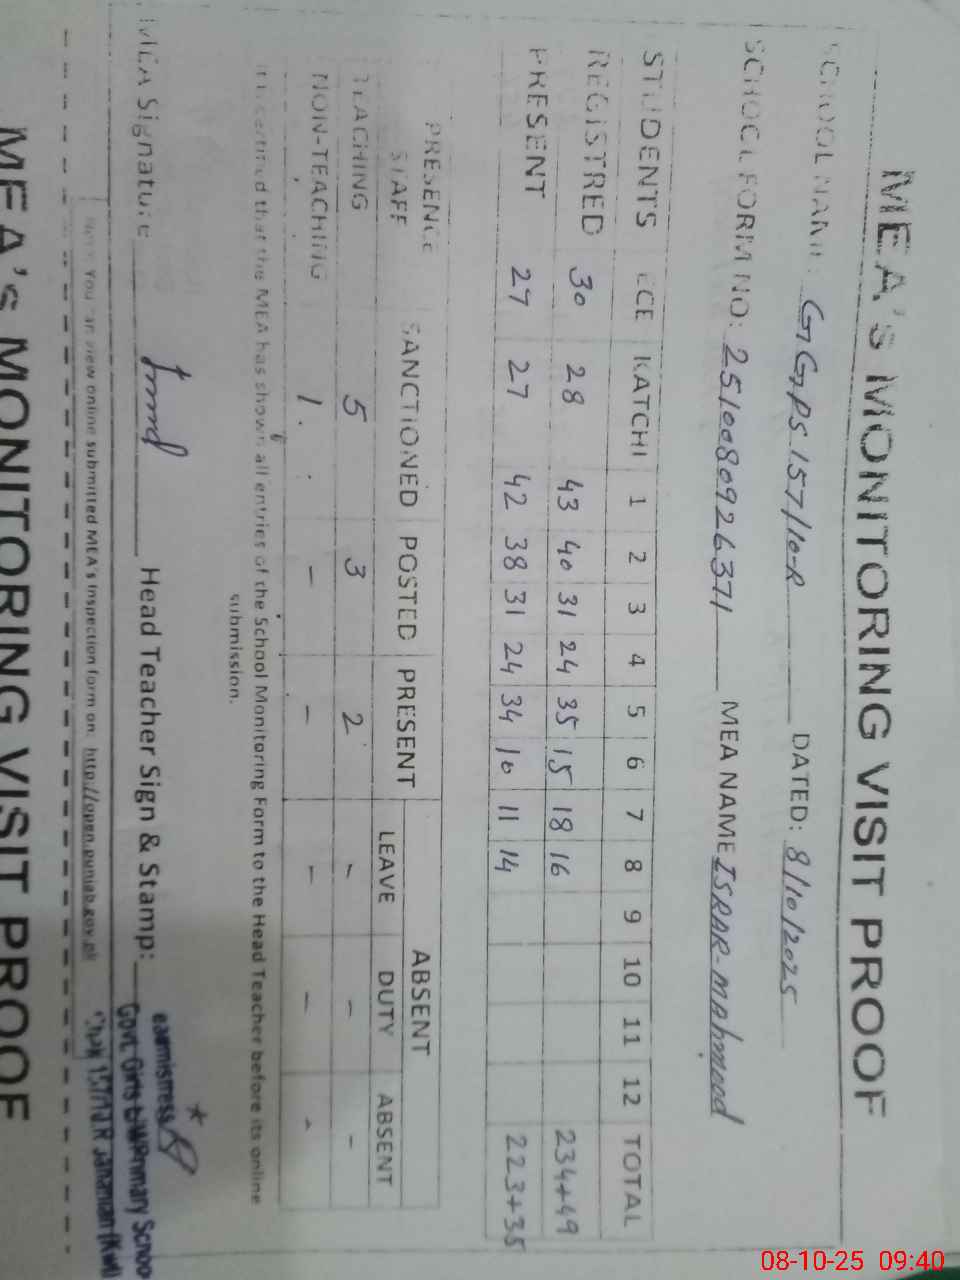 MEA's MONITORING VISIT PROOF
SCHOOL NAME: GGPS.157/10-R DATED: 8/10/2025
SCHOOL FORM NO: 2510080926371 MEA NAME ISRAR-Mahmood
STUDENTS ECE KATCHI 1 2 3 4 5 6 7 8 9 10 11 12 TOTAL
REGISTRED 30 28 43 40 31 24 35 15 18 16 234+49
PRESENT 27 27 42 38 31 24 34 10 11 14 223+35
PRESENCE ABSENT
STAFF SANCTIONED POSTED PRESENT LEAVE DUTY ABSENT
TEACHING 5 3 2 - - -
NON-TEACHING 1. - - - - -
It is certified that the MEA has shown all entries of the School Monitoring Form to the Head Teacher before its online
submission.
MEA Signature Head Teacher Sign & Stamp:
Govt. Girls Primary School
Chak 157/10.R Jahanian (Kwl)
You can view online submitted MEA's Inspection form on: http://open.punjab.gov.pk
MEA's MONITORING VISIT PROOF
08-10-25 09:40